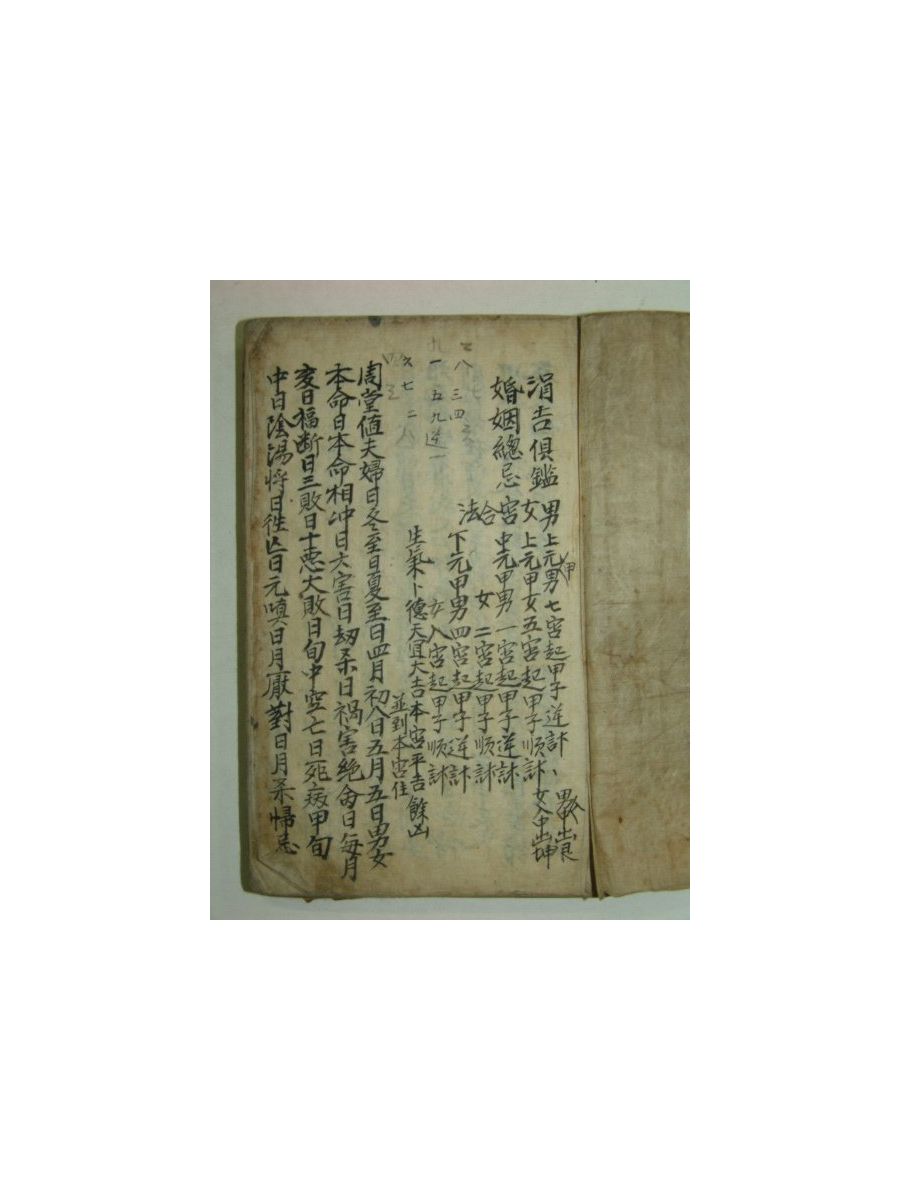 涓吉俱鑑
男上元甲男七宮起甲子逆計
男入中出艮
女入中出坤
女上元甲女五宮起甲子順計
婚姻總忌
宮中元甲男一宮起甲子逆計
女二宮起甲子順計
合
法
下元甲男四宮起甲子逆計
女入宮起甲子順計
八三四
一五九逆一
六七二
生氣卜德天宜大吉本宮平吉餘凶
並到本宮住
周堂値夫婦日冬至日夏至日四月初八日五月五日男女
本命日本命相冲日六害日劫杀日禍害絶命日每月
亥日福斷日三敗日十惡大敗日旬中空亡日死病甲旬
中日陰陽將日徃亡日元嗔日月厭對日月杀帰忌